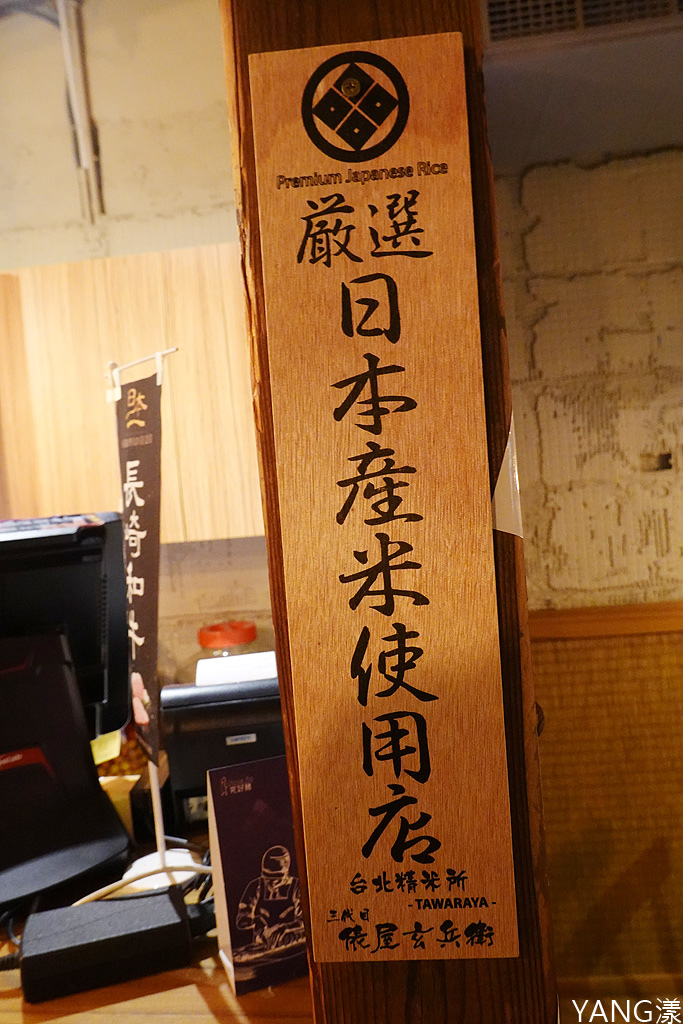 Premium Japanese Rice
厳選
日本産米使用店
台北精米所
- TAWARAYA -
三代目
俵屋玄兵衛
日本一
長崎和牛
YANG漾